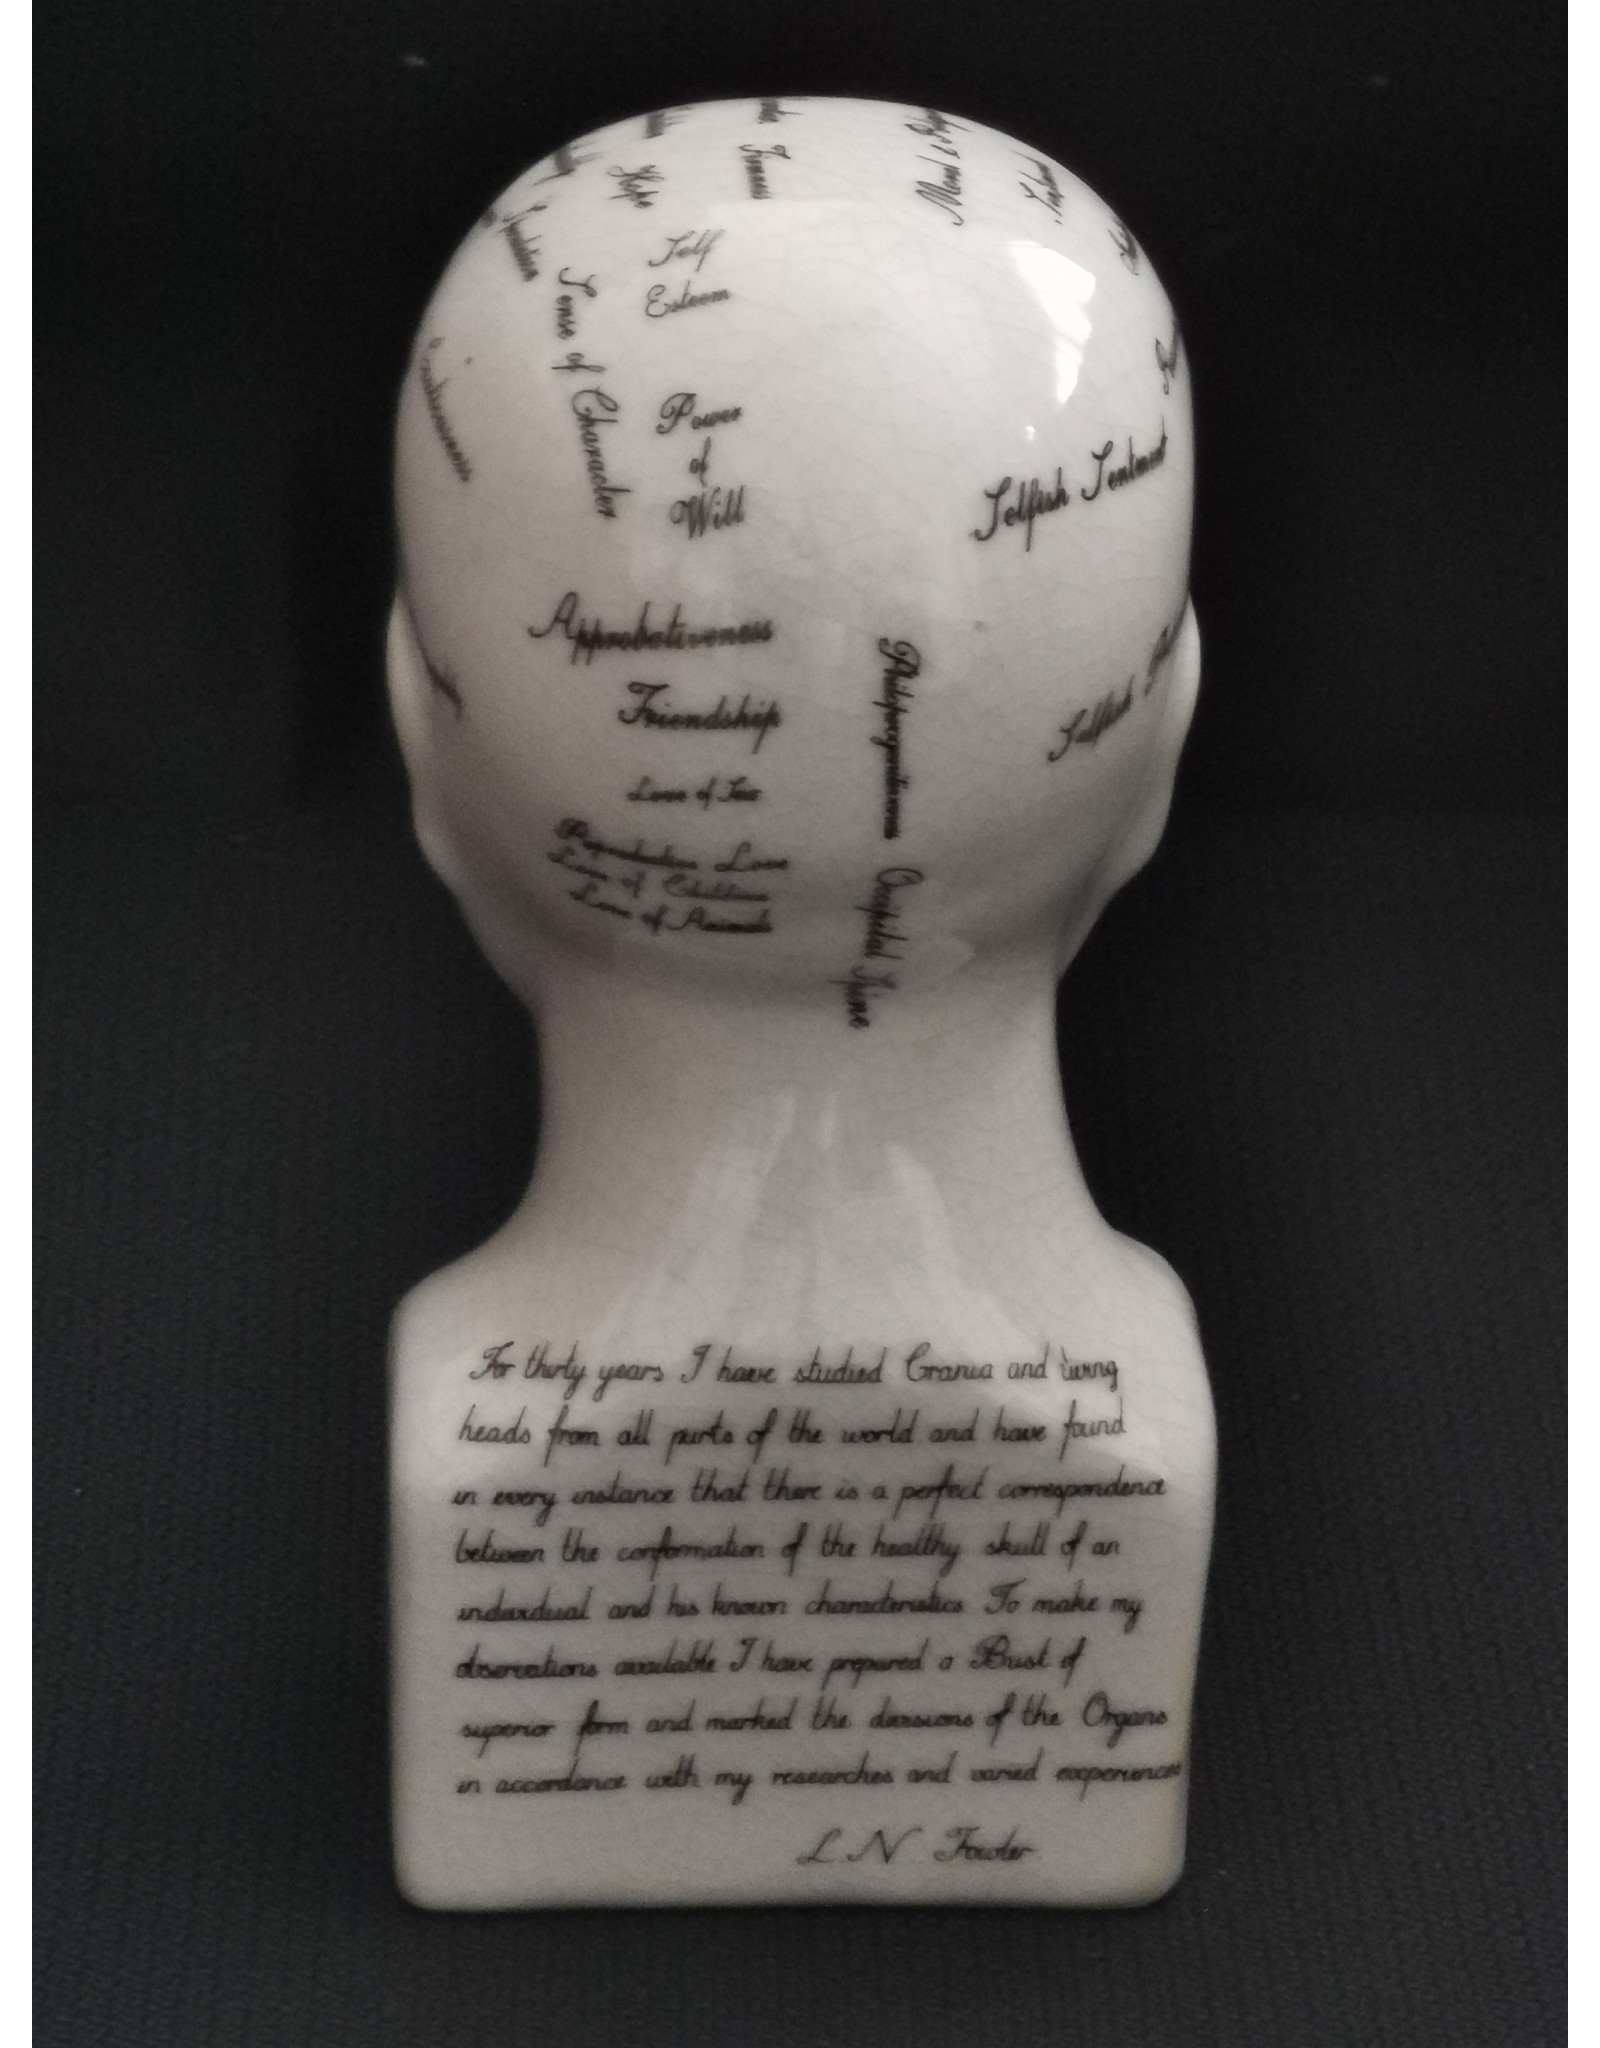 Hope
Firmness
Moral &
Self
Esteem
Sense of Character
Power
of
Will
Selfish Sentiment
Approbativeness
Friendship
Love of Sex
Reproductive Love
Love of Children
Love of Animals
Philoprogenitiveness
Occipital Spine
Selfish
For thirty years I have studied Crania and living
heads from all parts of the world and have found
in every instance that there is a perfect correspondence
between the conformation of the healthy skull of an
individual and his known characteristics To make my
observations available I have prepared a Bust of
superior form and marked the divisions of the Organs
in accordance with my researches and varied experiences
L. N Fowler